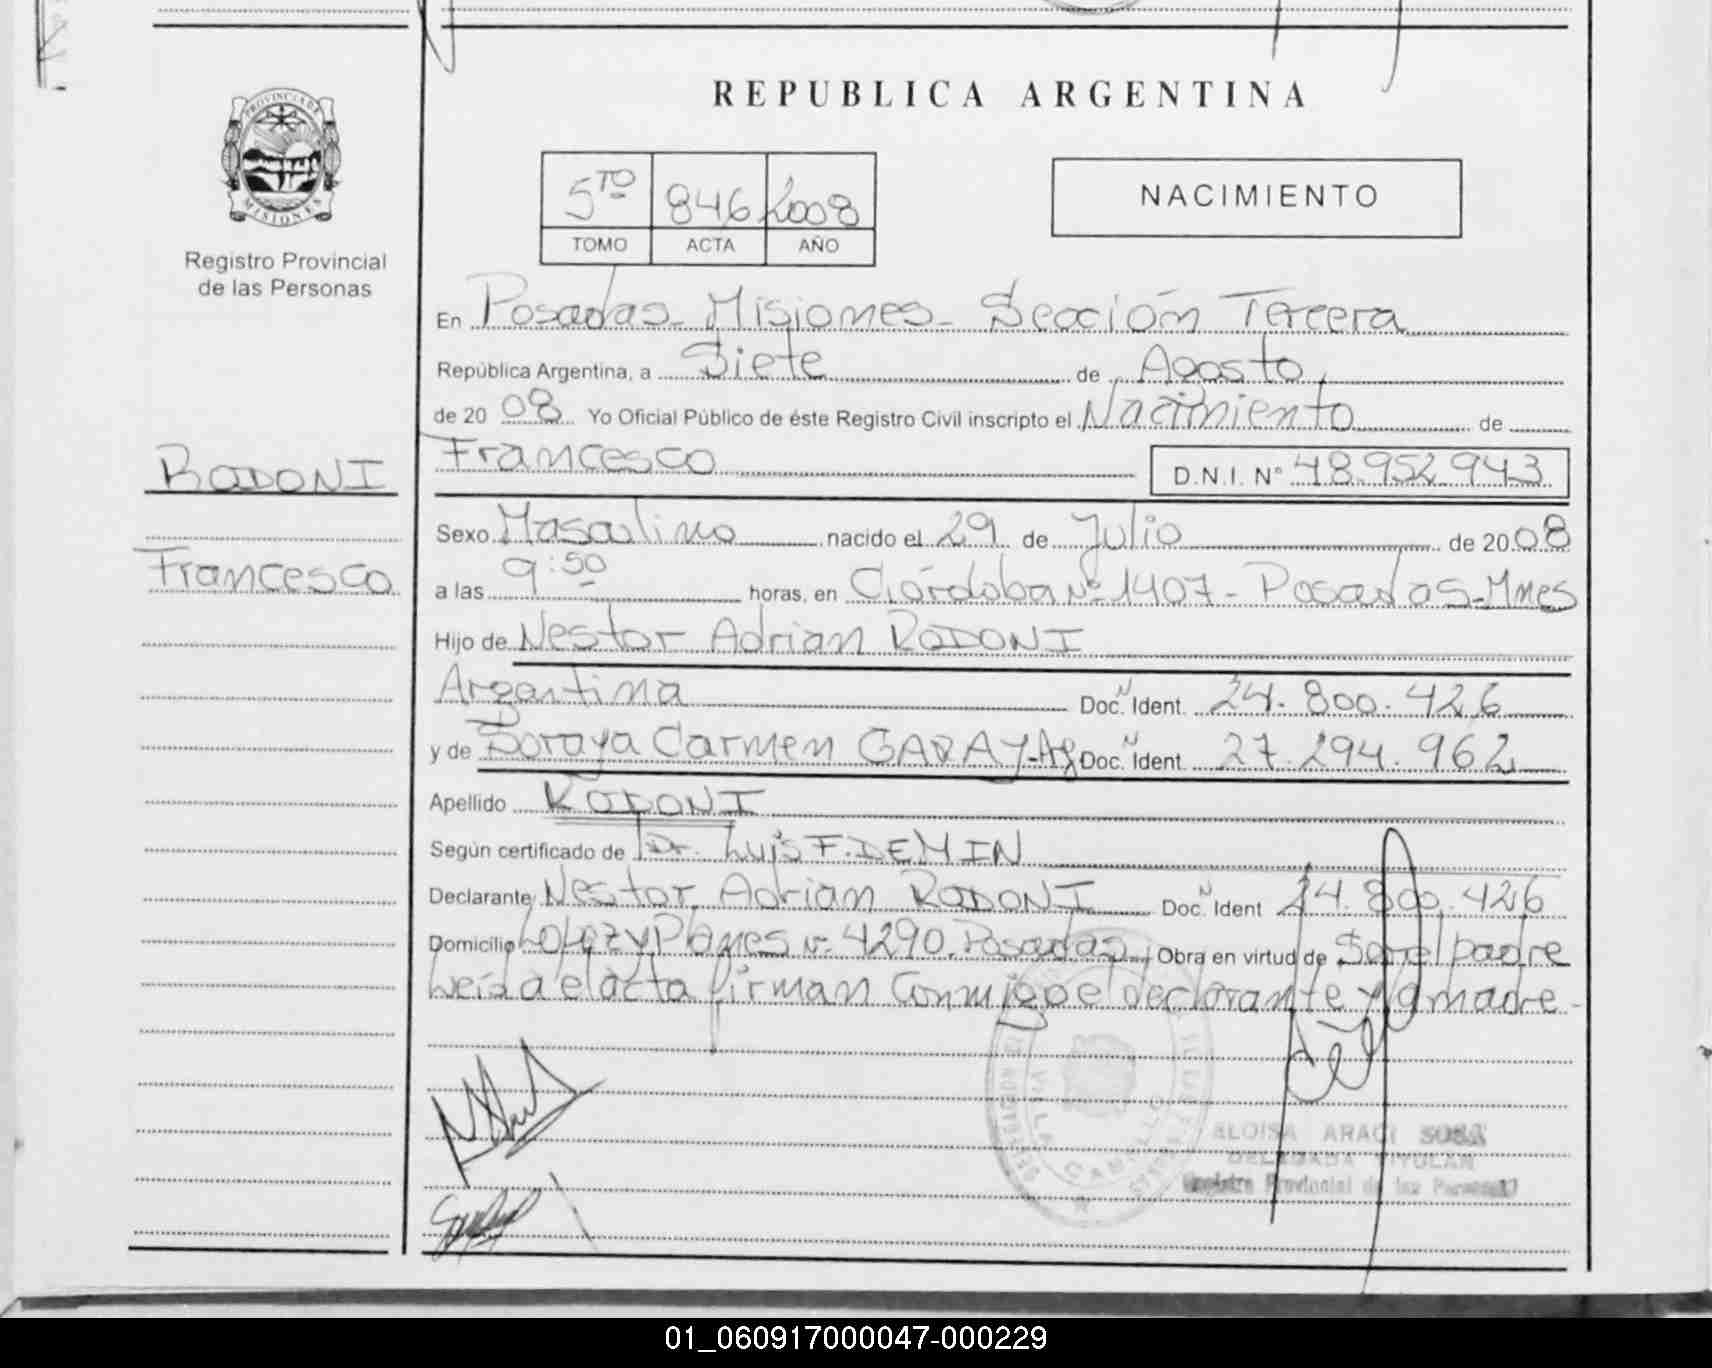 REPUBLICA ARGENTINA
PROVINCIA DE
MISIONES
Registro Provincial
de las Personas
5TO 846 2008
TOMO ACTA AÑO
NACIMIENTO
En Posadas - Misiones - Sección Tercera
República Argentina, a Siete de Agosto
de 20 08 Yo Oficial Público de éste Registro Civil inscripto el Nacimiento de
RODONI
Francesco D.N.I. Nº 48.952.943
Sexo Masculino nacido el 29 de Julio de 20 08
Francesco
a las 9:50 horas, en Córdoba Nº 1407 - Posadas - Mnes
Hijo de Nestor Adrian RODONI
Argentina Doc. N Ident. 24.800.426
y de Soraya Carmen GARAY - Ag Doc. N Ident. 27.294.962
Apellido RODONI
Según certificado de Dr. Luis F. DEMIN
Declarante Nestor Adrian RODONI Doc. N Ident 24.800.426
Domicilio López y Planes Nº 4290. Posadas Obra en virtud de Ser el padre
Leída el acta firman Conmigo el declarante y la madre -
ELOISA ARACI SOSA
DELEGADA TITULAR
Registro Provincial de las Personas
01_060917000047-000229